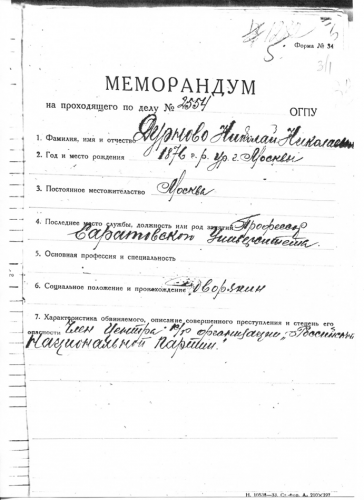 5.
Форма № 34
3/1
МЕМОРАНДУМ
на проходящего по делу № 2554 ОГПУ
1. Фамилия, имя и отчество Дурново Николай Николаевич
2. Год и место рождения 1876 г. р. ур. г. Москвы
3. Постоянное местожительство Москва
4. Последнее место службы, должность или род занятий Профессор
Саратовского Университета
5. Основная профессия и специальность
6. Социальное положение и происхождение дворянин
7. Характеристика обвиняемого, описание совершенного преступления и степень его
опасности Член Центра к/р организации „Российской
Национальной Партии".